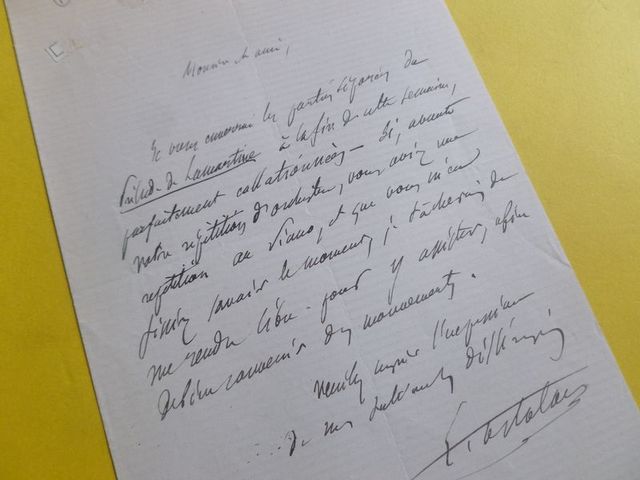 Monsieur et ami,
Je vous enverrai les parties séparées du
Prélude de Lamartine à la fin de cette semaine,
parfaitement collationnées — Si, avant
notre répétition d'orchestre, vous aviez une
répétition au Piano, et que vous m'en
fissiez savoir le moment, je tâcherais de
me rendre libre pour y assister, afin
de bien convenir des mouvements.
Veuillez agréer l'expression
de mes salutations distinguées